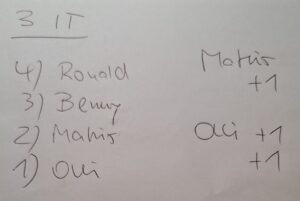 3 IT
4) Ronald
3) Benny
2) Mahir
1) Oli
Mahir
+1
+1
+1